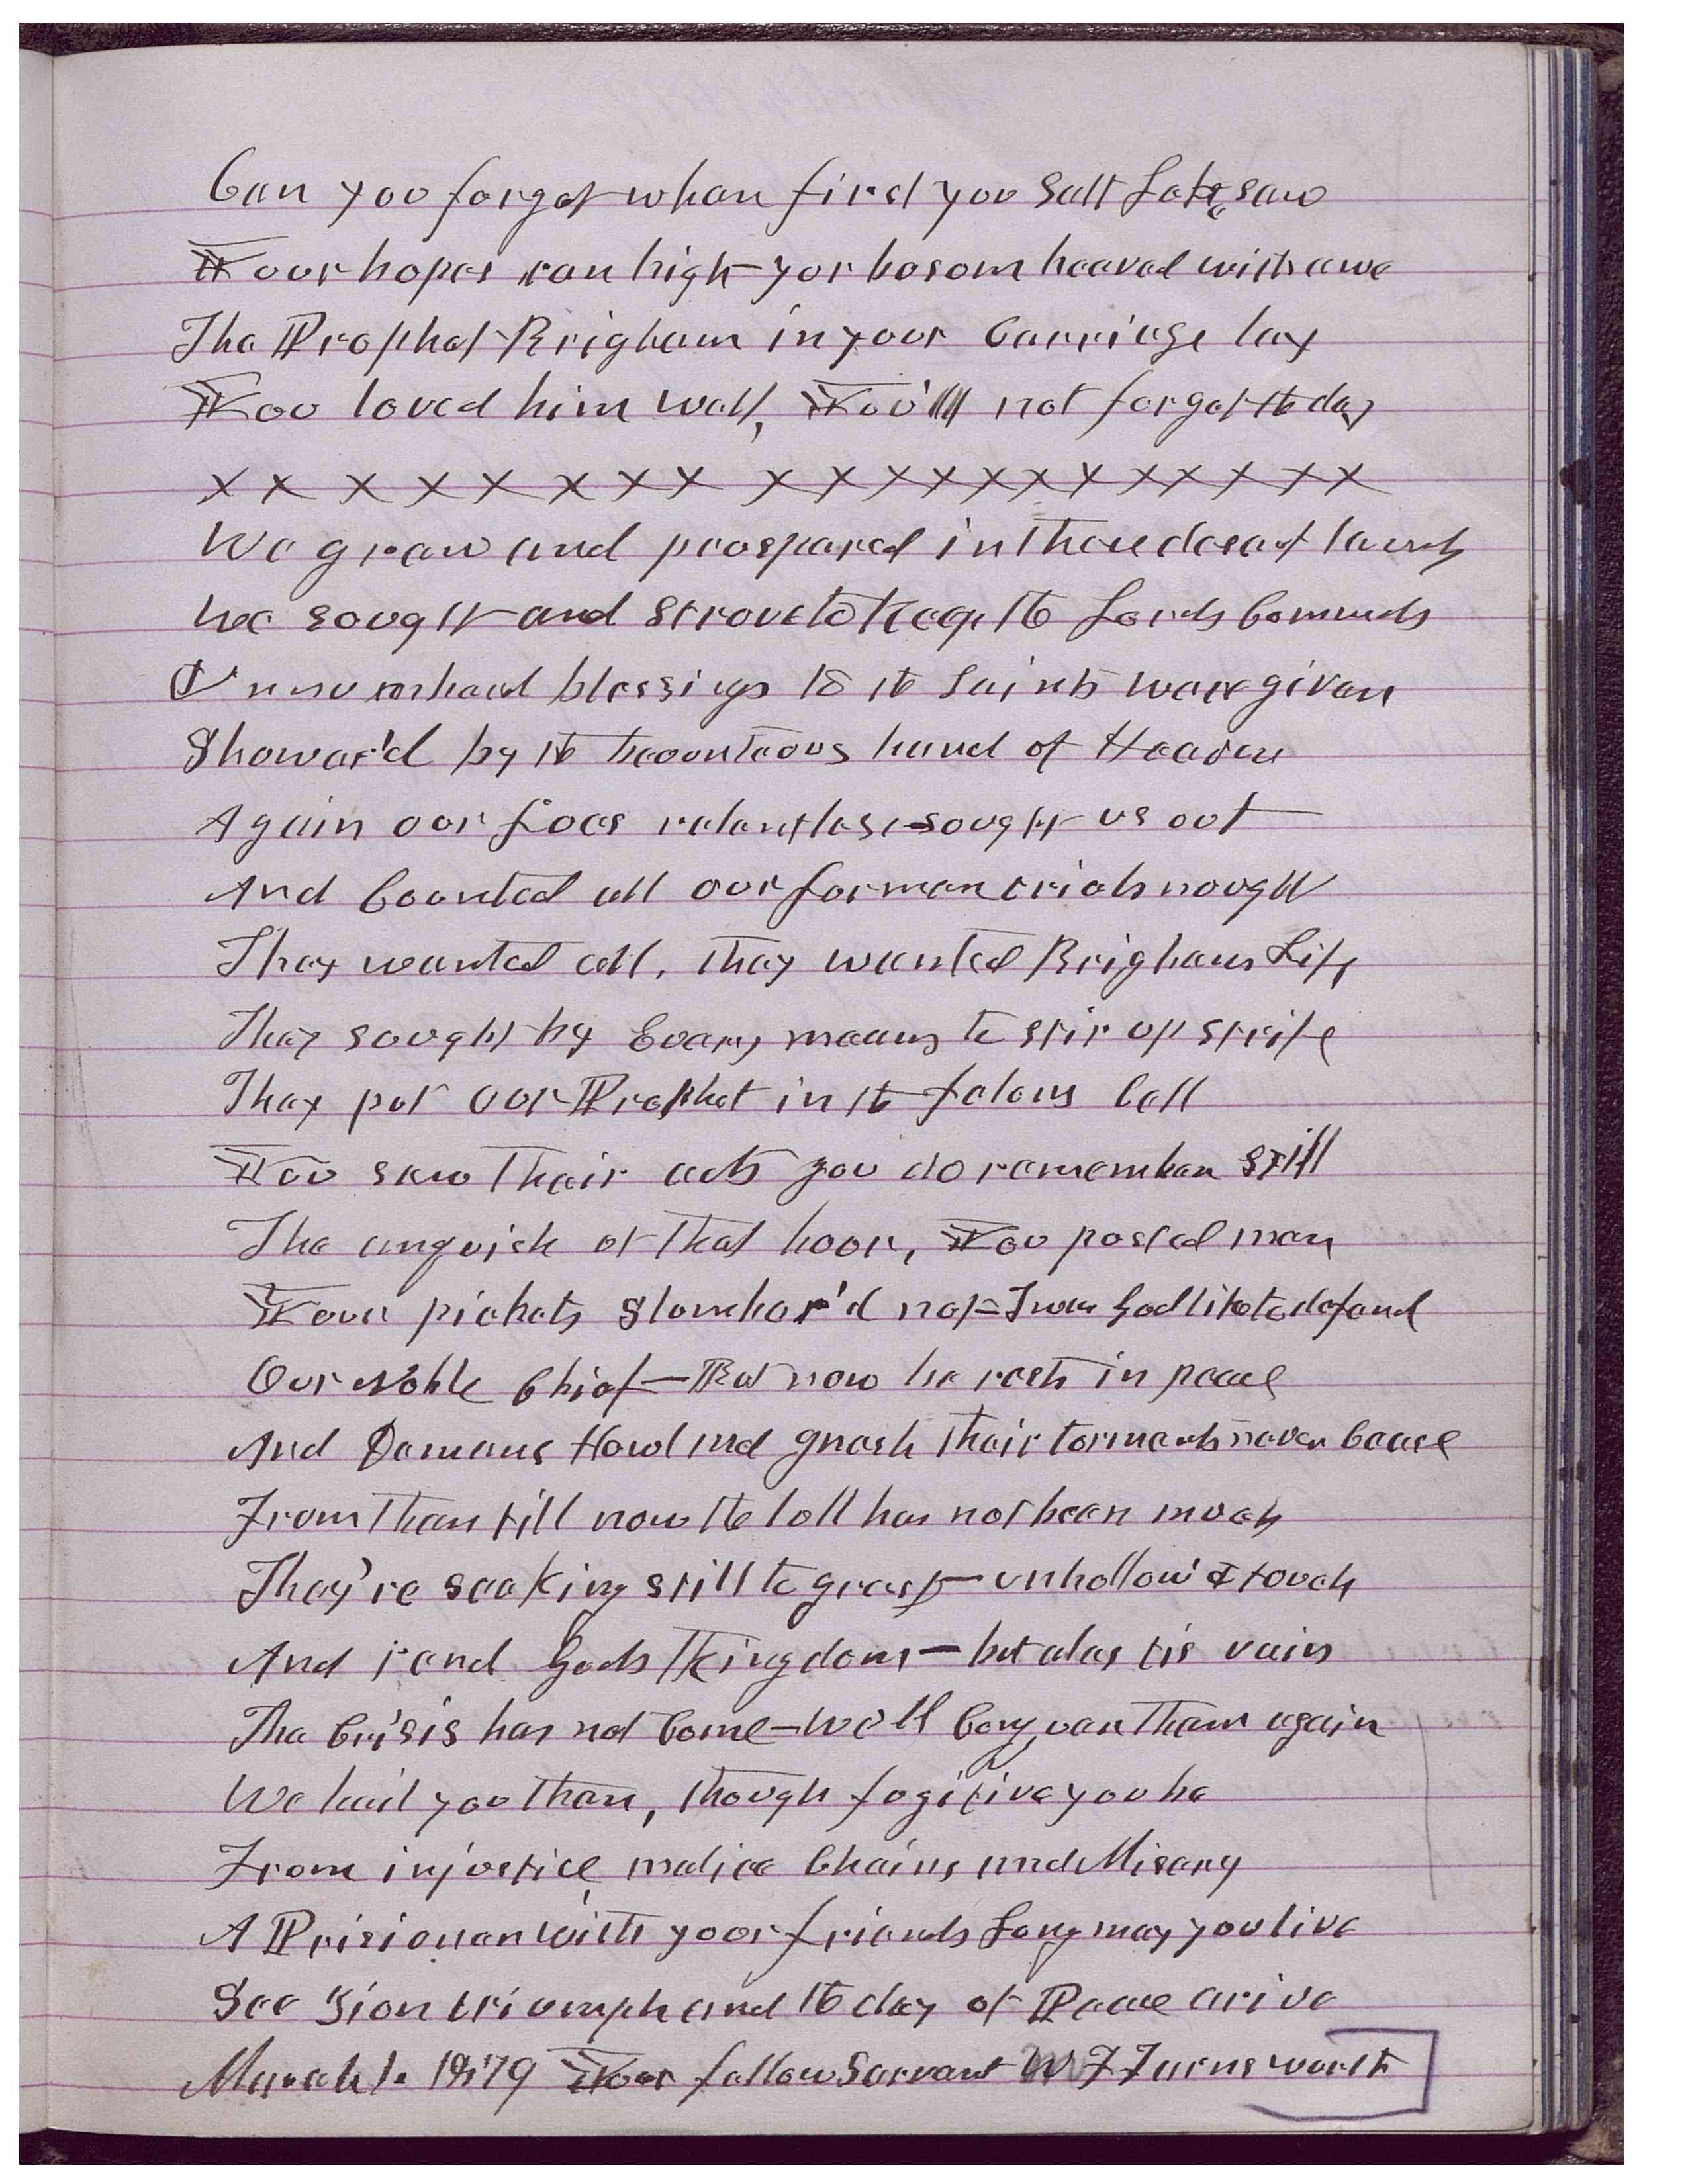 Can you forget when first you Salt Lake, saw
Your hopes ran high - yor bosom heaved with awe
The Prophet Brigham in your Carriage lay
You loved him well, You'll not forget the day
x x x x x x x x x x x x x x x x x x x x
We grew and prospered in these desert lands
We sought and strove to keep the Lords Comands
Unnumbered blessings to the Saints were given
Shower'd by the bounteous hand of Heaven
Again our foes relentless sought us out
And Counted all our former trials nought
They wanted all, They wanted Brighams Life
They sought by Every means to stir up strife
They put our Prophet in the felons Cell
You saw Their acts you do remember still
The anguish of that hour, You posted men
Your pickets Slumber'd not - Twas God like to defend
Our Noble Chief - But now he rests in peace
And Demons Howl and gnash Their torments never Cease
From Then till now the lull has not been much
They're seeking still to grasp - unhollow'd touch
And rend Gods Kingdom - but alas tis vain
The Crisis has not Come - We'll Conquer Them again
We hail you Then, Though fugitive you be
From injustice, malice Chains and Misery
A Prisioner with your friends Long may you live
See Zion triumph and the day of Peace arive
March 1. 1879 Your fellow Servant W F Farnsworth